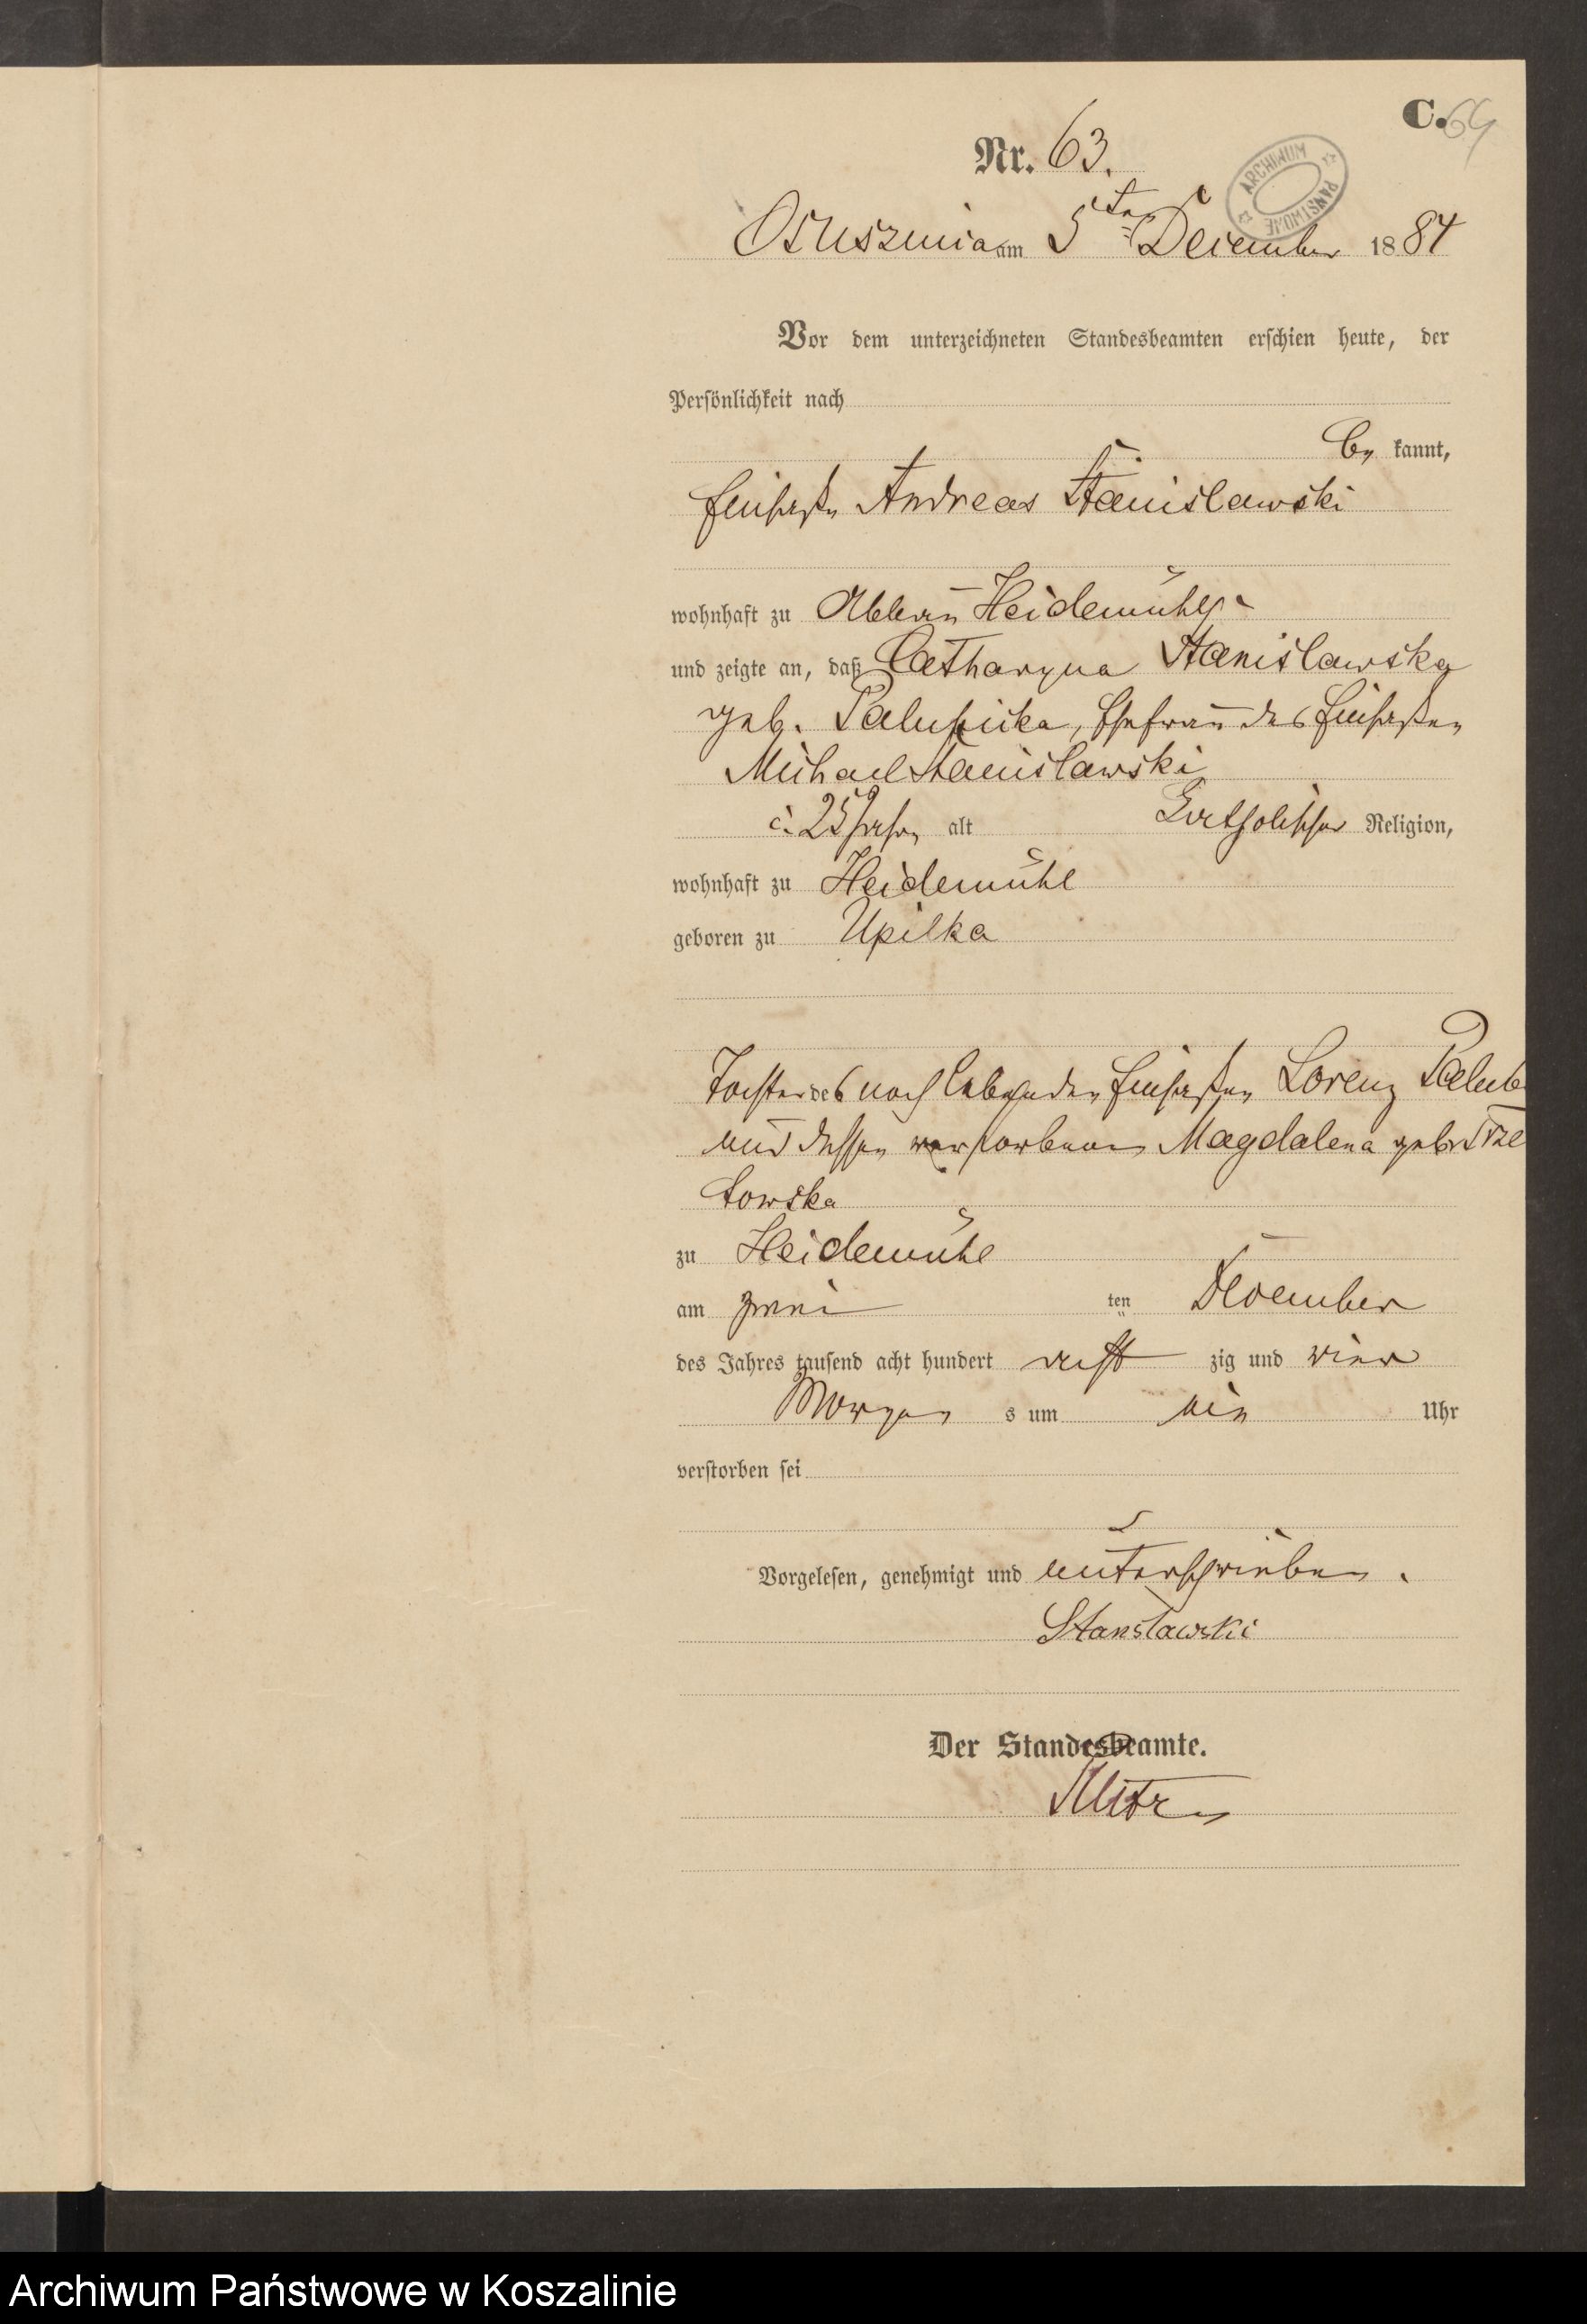 C. 64
Nr. 63.
ARCHIWUM PAŃSTWOWE
Osusznica am 5ten December 1884
Vor dem unterzeichneten Standesbeamten erschien heute, der
Persönlichkeit nach
be kannt,
Einsaße Andreas Stanislawski
wohnhaft zu Abbau Heidemühle
und zeigte an, daß Catharyna Stanislawska
geb. Ehefrau des Einsaßen
Michael Stanislawski
25 Jahre alt katholischer Religion,
wohnhaft zu Heidemühl
geboren zu Upilka
Tochter des noch lebenden Einsaßen Lorenz
und dessen verstorbenen Magdalena geb. Trze
towska
zu Heidemühl
am zwei ten December
des Jahres tausend acht hundert acht zig und vier
Morgen s um ein Uhr
verstorben sei
Vorgelesen, genehmigt und unterschrieben.
Stanslawski
Der Standesbeamte.
Archiwum Państwowe w Koszalinie